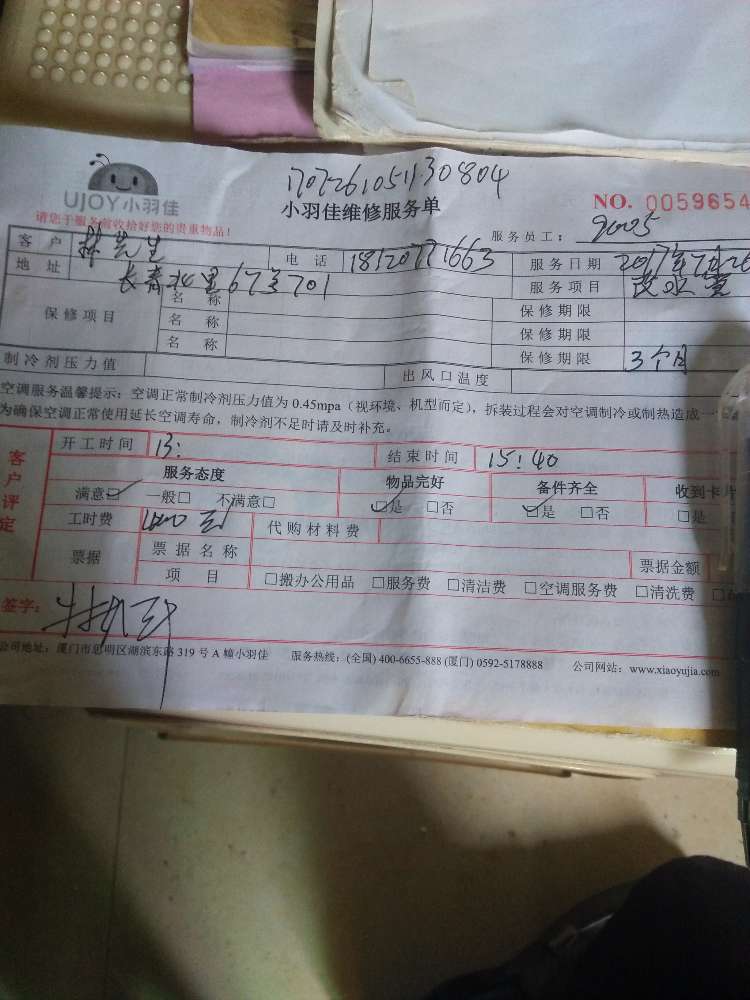 170726105430804
UJOY小羽佳
小羽佳维修服务单
NO. 0059654
请您于服务前收拾好您的贵重物品!
服务员工: 9005
客户 林先生 电话 18120771663 服务日期 2017年7月26
地址 长青北里67号701 服务项目 改水管
保修项目 名称 保修期限
名称 保修期限
名称 保修期限 3个月
制冷剂压力值 出风口温度
空调服务温馨提示: 空调正常制冷剂压力值为 0.45mpa (视环境、机型而定), 拆装过程会对空调制冷或制热造成一
为确保空调正常使用延长空调寿命, 制冷剂不足时请及时补充。
客户评定
开工时间 13: 结束时间 15:40
服务态度 物品完好 备件齐全 收到卡片
满意☑ 一般□ 不满意□ ☑是 □否 ☑是 □否 □是
工时费 代购材料费
票据 票据名称 票据金额
项目 □搬办公用品 □服务费 □清洁费 □空调服务费 □清洗费
签字:
公司地址: 厦门市思明区湖滨东路 319 号 A 幢小羽佳 服务热线: (全国) 400-6655-888 (厦门) 0592-5178888 公司网站: www.xiaoyujia.com